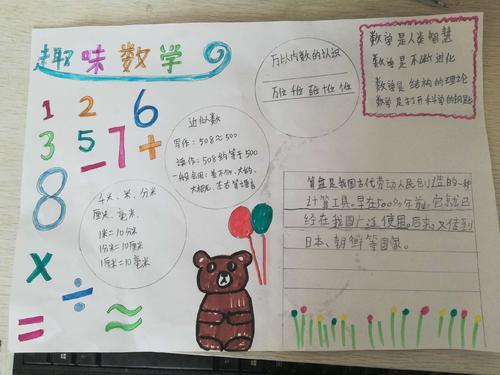 趣味数学
1 2 6
3 5 -7 +
8
×
÷
= ≈
近似数
写作:508≈500
读作:508约等于500
千米、米、分米
厘米、毫米、
1米=10分米
1分米=10厘米
1厘米=10毫米
万以内数的认识
万位 千位 百位 十位 个位
数学是人类智慧
数学是不断进化
数学是结构的理论
数学是打开科学的钥匙
算盘是我国古代劳动人民创造的一种
计算工具。早在500多年前,它就已
经在我国广泛使用。后来,又传到
日本、朝鲜等国家。